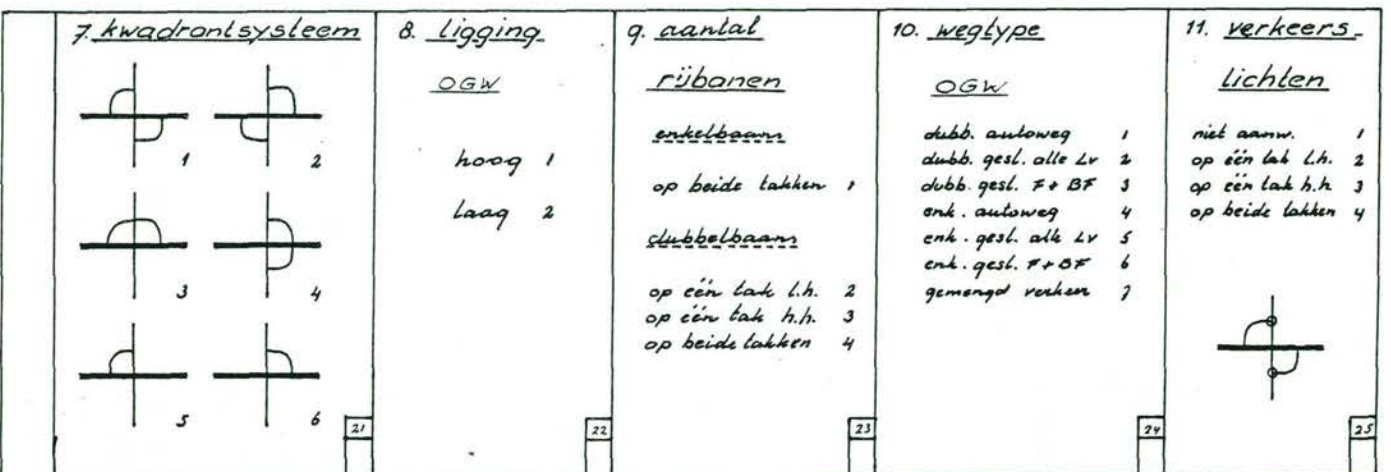 7. kwadrantsysteem
1
2
3
4
5
6
21
8. ligging
OGW
hoog 1
laag 2
22
9. aantal
rijbanen
enkelbaans
op beide takken 1
dubbelbaans
op één tak l.h. 2
op één tak h.h. 3
op beide takken 4
23
10. wegtype
OGW
dubb. autoweg 1
dubb. gesl. alle Lv 2
dubb. gesl. F + BF 3
enk. autoweg 4
enk. gesl. alle Lv 5
enk. gesl. F + BF 6
gemengd verkeer 7
24
11. verkeers-
lichten
niet aanw. 1
op één tak l.h. 2
op één tak h.h 3
op beide takken 4
25